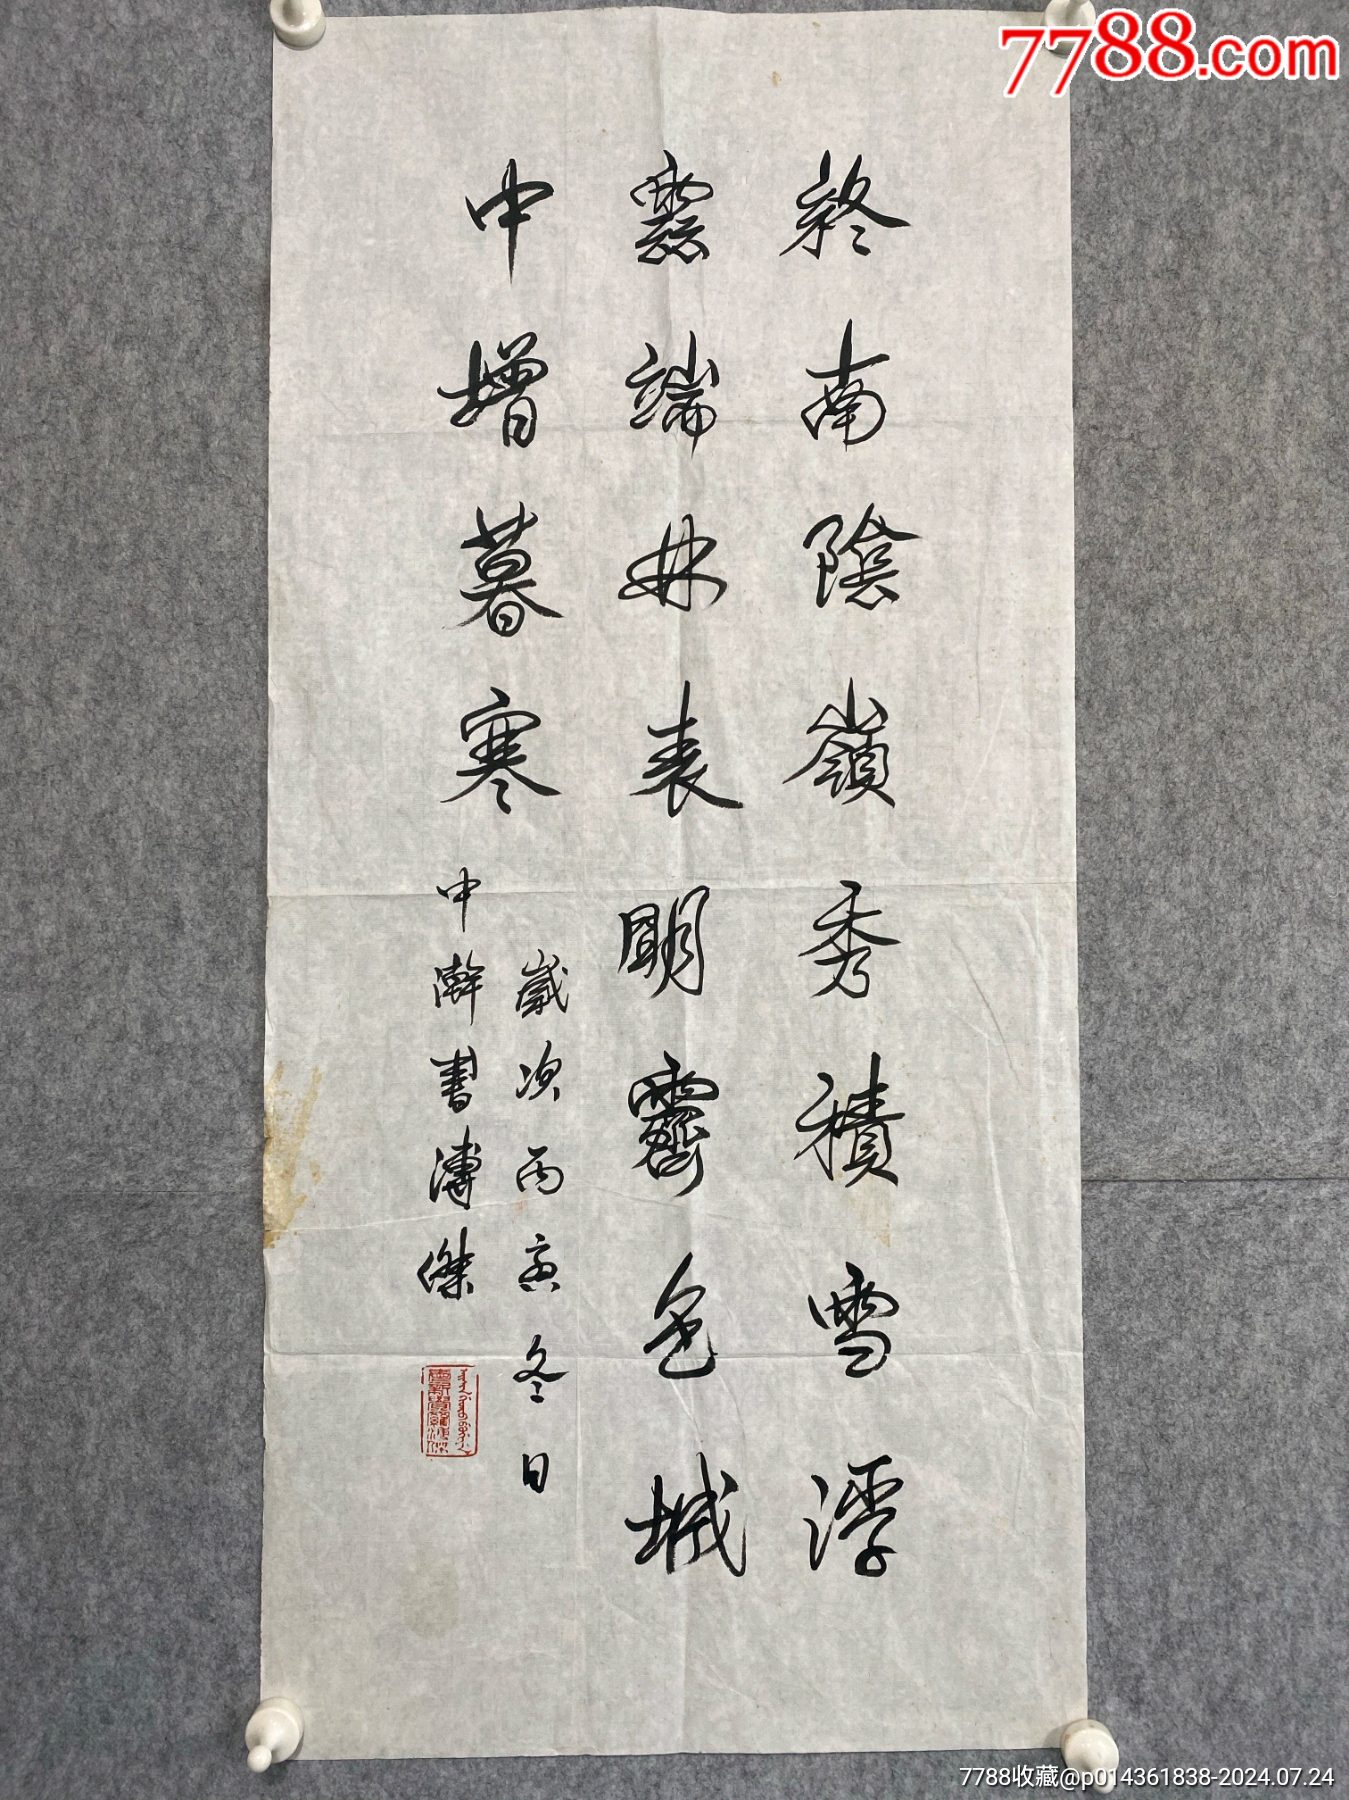 終南陰嶺秀積雪浮
雲端林表明霽色城
中增暮寒
歲次丙寅冬日
中瀚書溥傑
7788.com
7788收藏@p014361838-2024.07.24